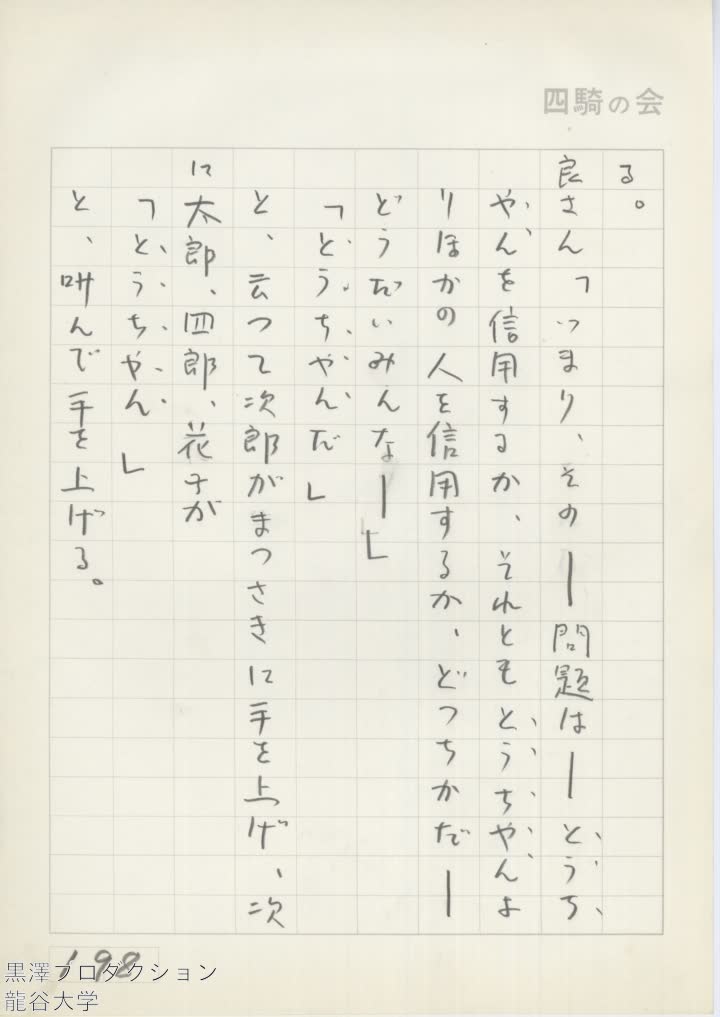 四騎の会
る。
良さん「つまり、その――問題は――とうち
やんを信用するか、それともとうちやんよ
りほかの人を信用するか、どつちかだ――
どうだいみんな――」
「とうちやんだ」
と、云つて次郎がまつさきに手を上げ、次
に太郎、四郎、花子が
「とうちやん」
と、叫んで手を上げる。
198
黒澤プロダクション
龍谷大学